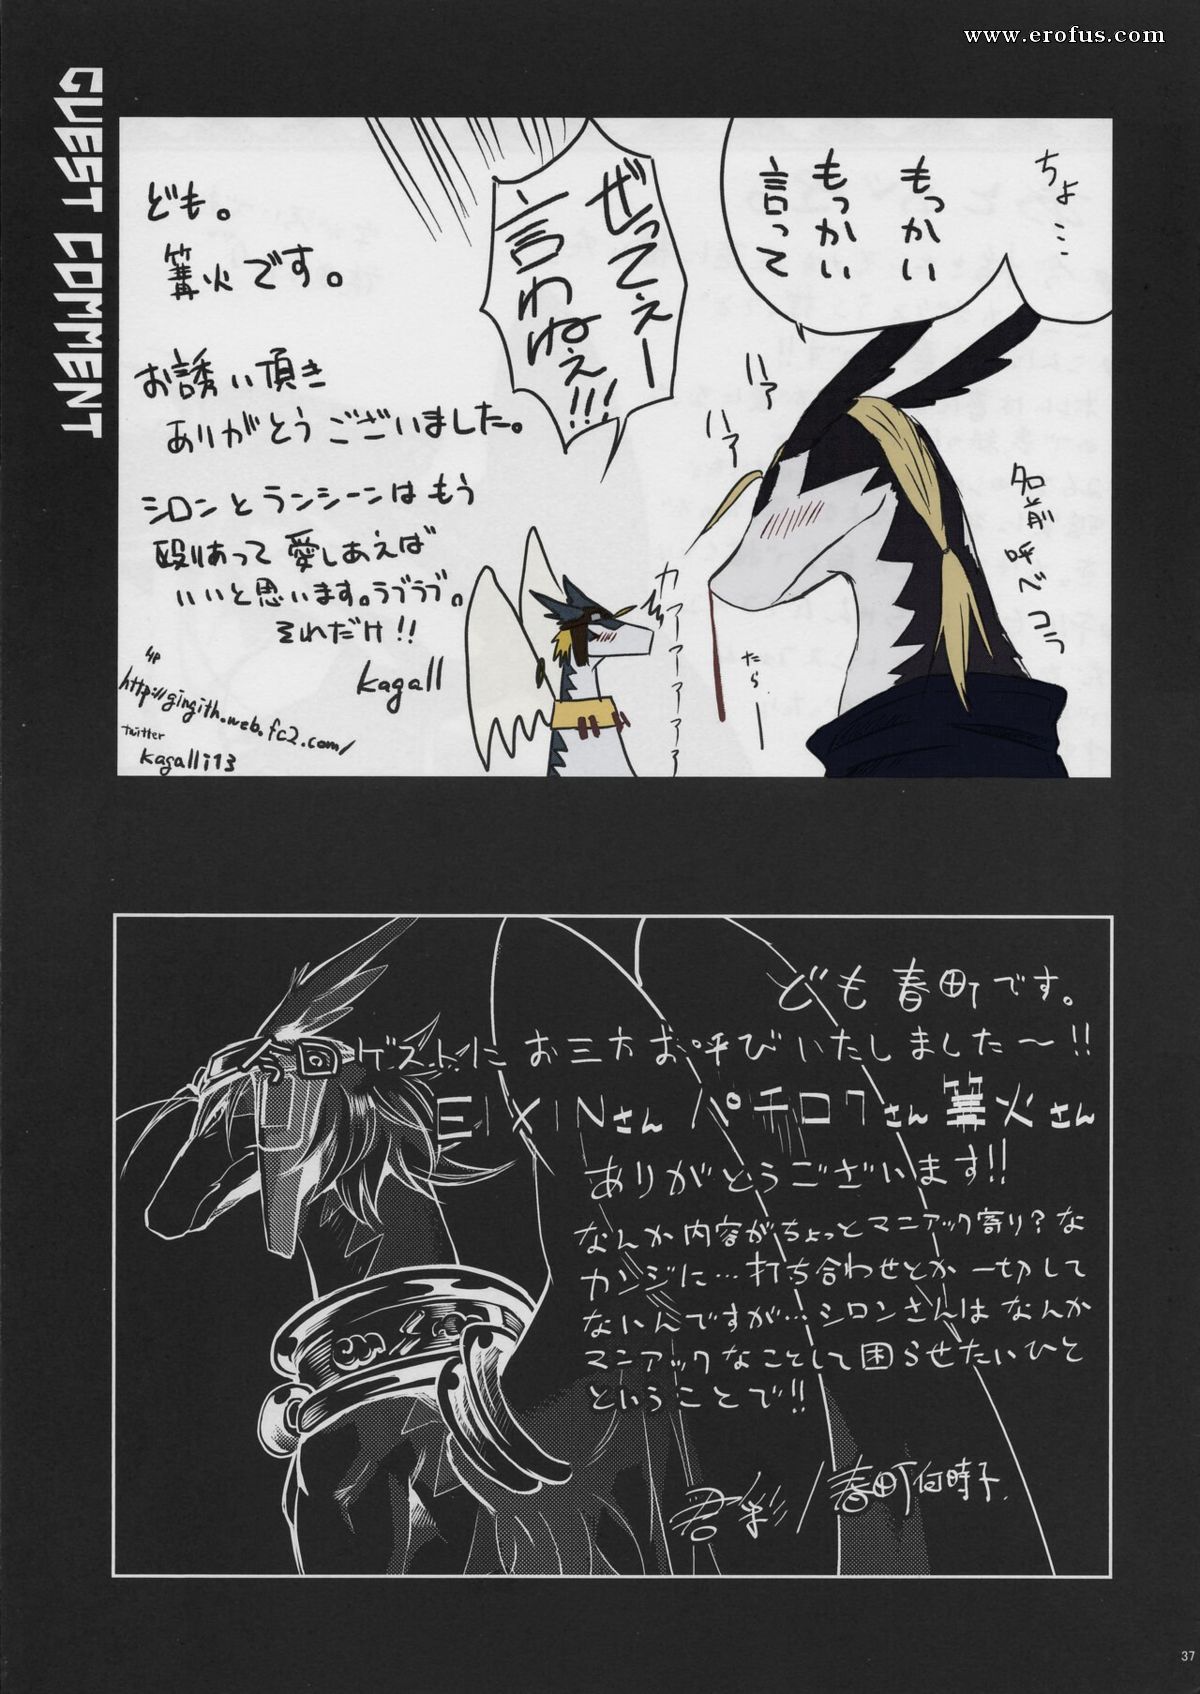 www.erofus.com
GUEST COMMENT
ちょ…
もっかい
もっかい
言って
ぜってぇー
言わねえ!!!
ハァ
ハァ
名前呼べコラ
カァァーァァァ
たらー
ども。
篝火です。
お誘い頂き
ありがとうございました。
シロンとランシーンはもう
殴りあって愛しあえば
いいと思います。ラブラブ。
それだけ!!
kagall
HP
http://gingith.web.fc2.com/
twitter
kagalli13
ども春町です。
今回ゲストにお三方お呼びいたしました〜!!
EIXINさん パチロクさん 篝火さん
ありがとうございます!!
なんか内容がちょっとマニアック寄り?な
カンジに…打ち合わせとか一切して
ないんですが…シロンさんはなんか
マニアックなことして困らせたいひと
ということで!!
君彩/春町何時子.
37